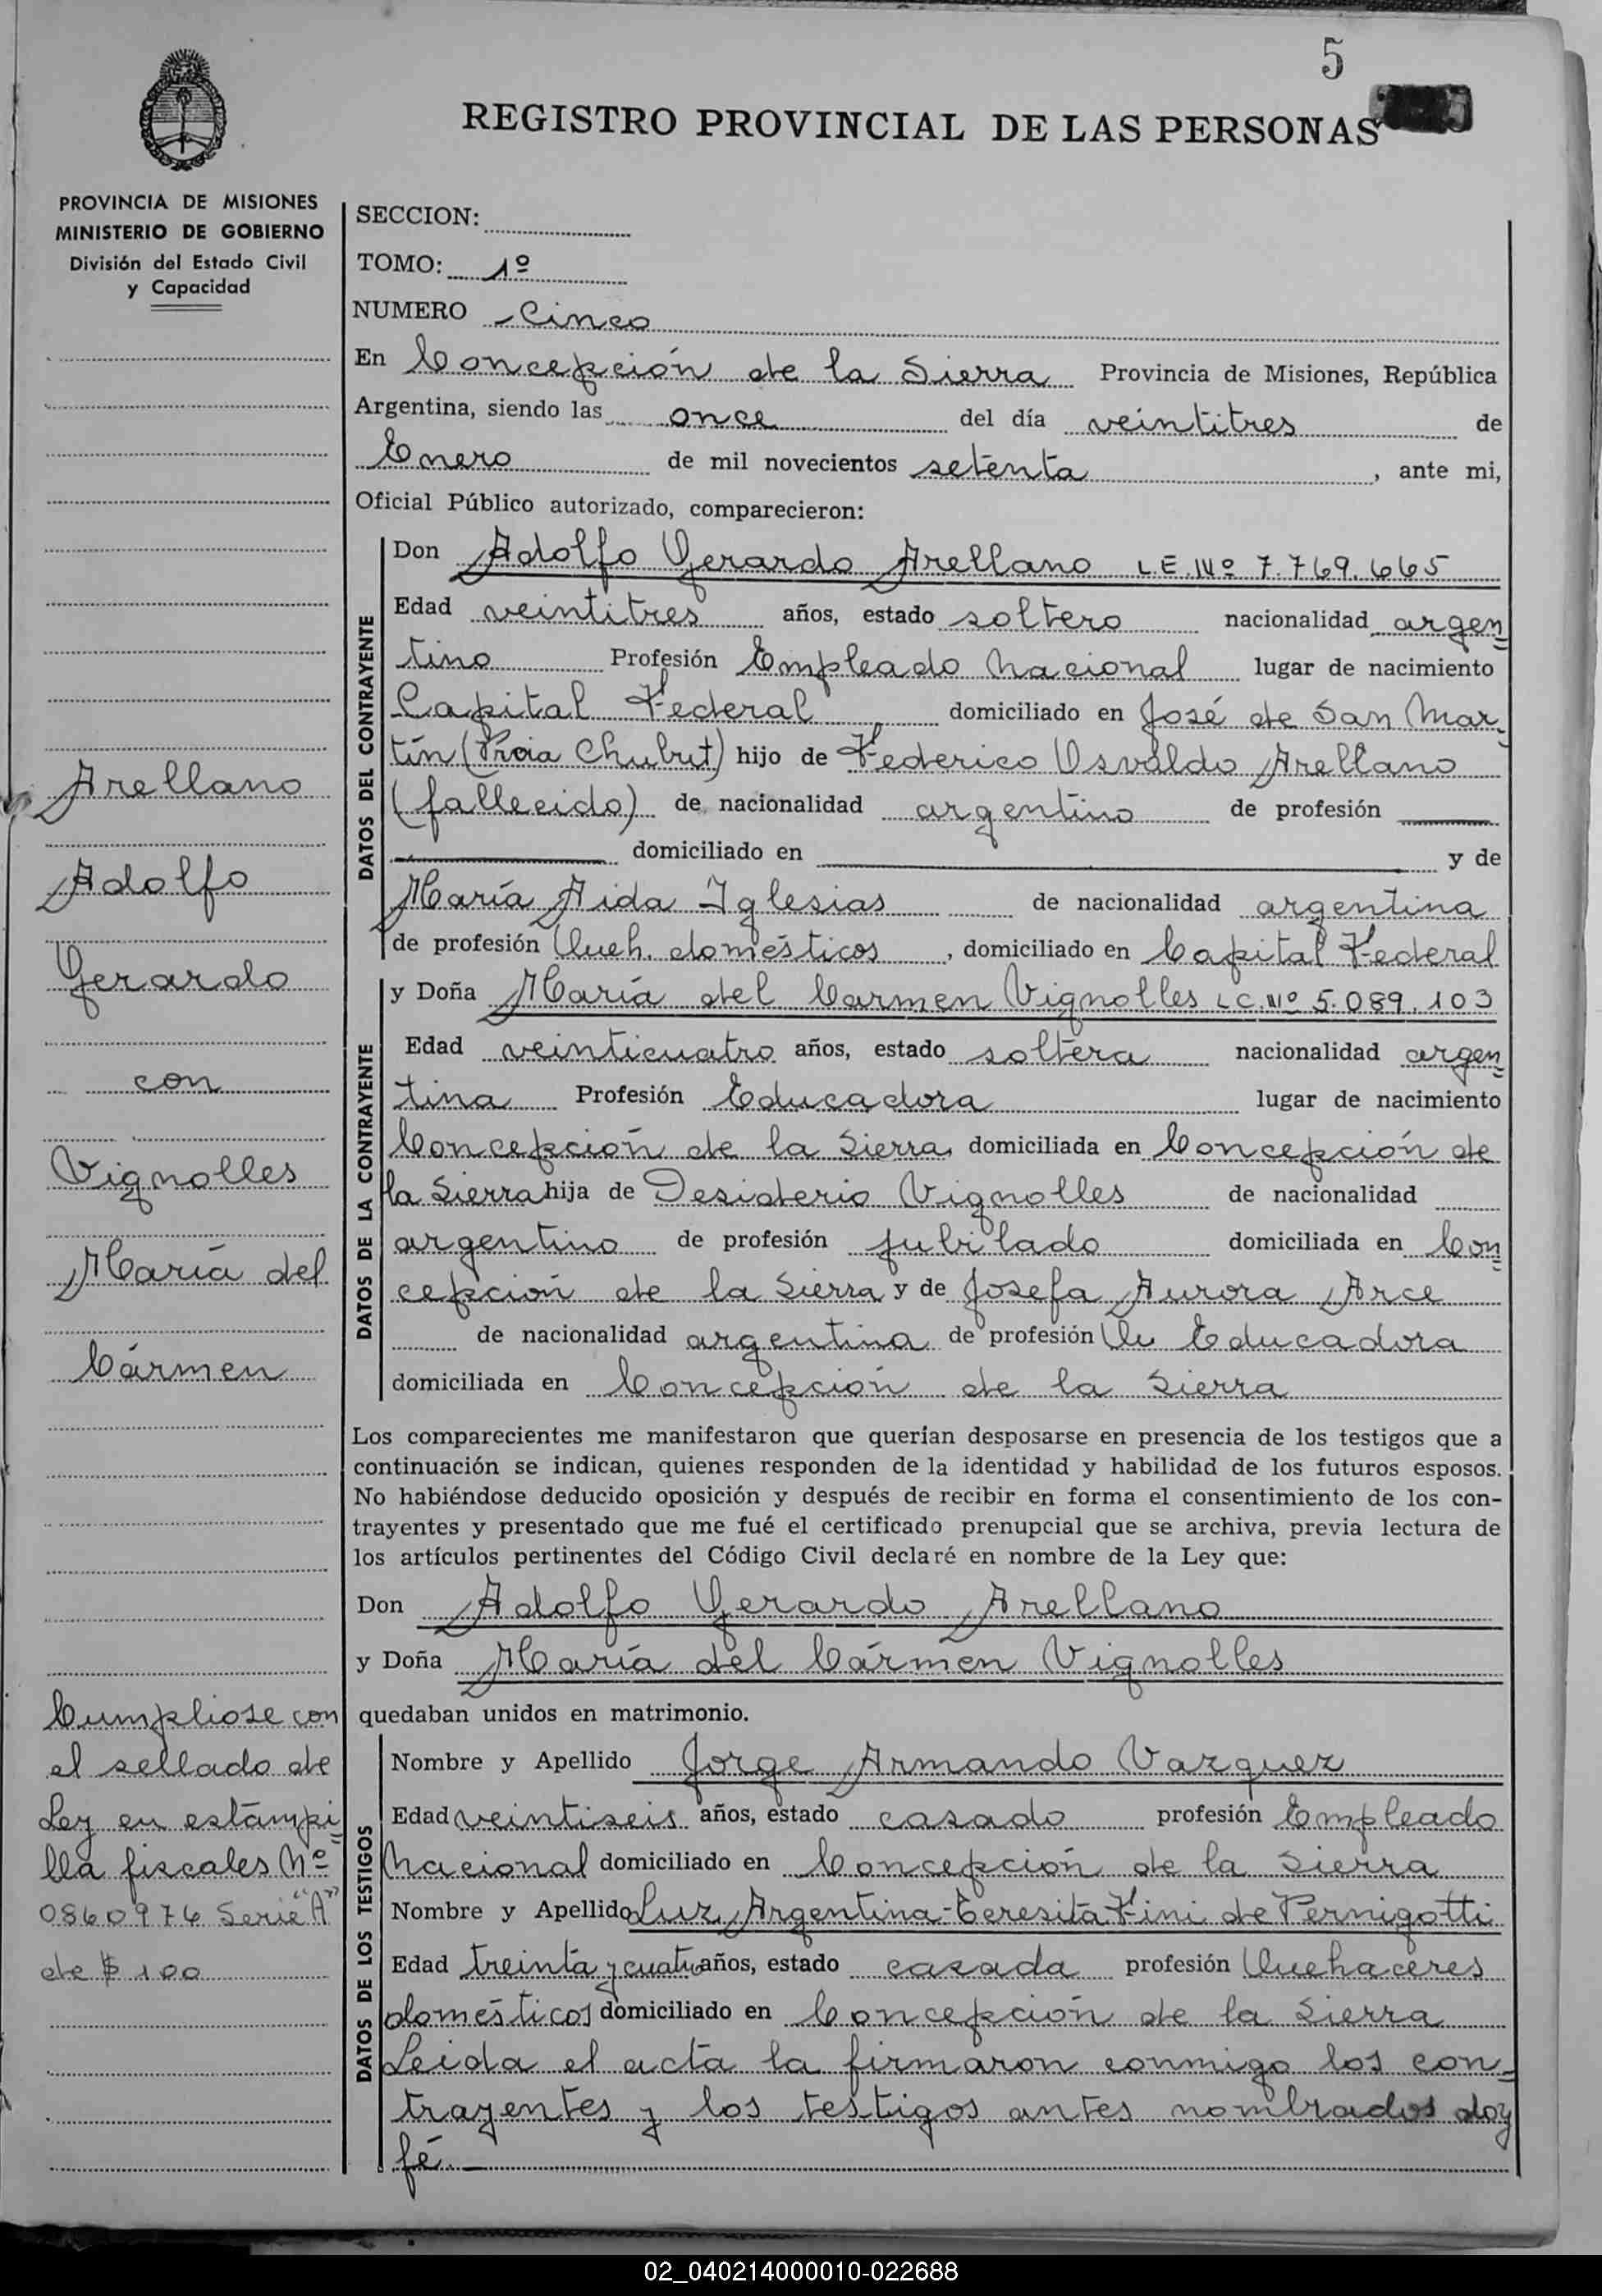 5
REGISTRO PROVINCIAL DE LAS PERSONAS
PROVINCIA DE MISIONES
MINISTERIO DE GOBIERNO
División del Estado Civil
y Capacidad
Arellano
Adolfo
Gerardo
con
Vignolles
María del
Cármen
Cumpliose con
el sellado de
Ley en estampi
lla fiscales Nº
0860976 Serie "A"
de $ 100
SECCION:
TOMO: 1º
NUMERO - Cinco
En Concepción de la Sierra Provincia de Misiones, República
Argentina, siendo las once del día veintitres de
Enero de mil novecientos setenta, ante mi,
Oficial Público autorizado, comparecieron:
DATOS DEL CONTRAYENTE
Don Adolfo Gerardo Arellano L.E.Nº 7.769.665
Edad veintitres años, estado soltero nacionalidad argen
tino Profesión Empleado Nacional lugar de nacimiento
Capital Federal domiciliado en José de San Mar
tín (Prcia Chubut) hijo de Federico Osvaldo Arellano
(fallecido) de nacionalidad argentino de profesión
domiciliado en y de
María Aida Iglesias de nacionalidad argentina
de profesión Queh. domésticos, domiciliado en Capital Federal
DATOS DE LA CONTRAYENTE
y Doña María del Carmen Vignolles L.C.Nº 5.089.103
Edad veinticuatro años, estado soltera nacionalidad argen
tina Profesión Educadora lugar de nacimiento
Concepción de la Sierra, domiciliada en Concepción de
la Sierra hija de Desiderio Vignolles de nacionalidad
argentino de profesión jubilado domiciliada en Con
cepción de la Sierra y de Josefa Aurora Arce
de nacionalidad argentina de profesión Educadora
domiciliada en Concepción de la Sierra
Los comparecientes me manifestaron que querían desposarse en presencia de los testigos que a
continuación se indican, quienes responden de la identidad y habilidad de los futuros esposos.
No habiéndose deducido oposición y después de recibir en forma el consentimiento de los con-
trayentes y presentado que me fué el certificado prenupcial que se archiva, previa lectura de
los artículos pertinentes del Código Civil declaré en nombre de la Ley que:
Don Adolfo Gerardo Arellano
y Doña María del Cármen Vignolles
quedaban unidos en matrimonio.
DATOS DE LOS TESTIGOS
Nombre y Apellido Jorge Armando Vazquez
Edad veintiseis años, estado casado profesión Empleado
Nacional domiciliado en Concepción de la Sierra
Nombre y Apellido Luz Argentina Teresita Fini de Pernigotti
Edad treinta y cuatro años, estado casada profesión Quehaceres
domésticos domiciliado en Concepción de la Sierra
Leida el acta la firmaron conmigo los con-
trayentes y los testigos antes nombrados doy
fé.-
02_040214000010-022688